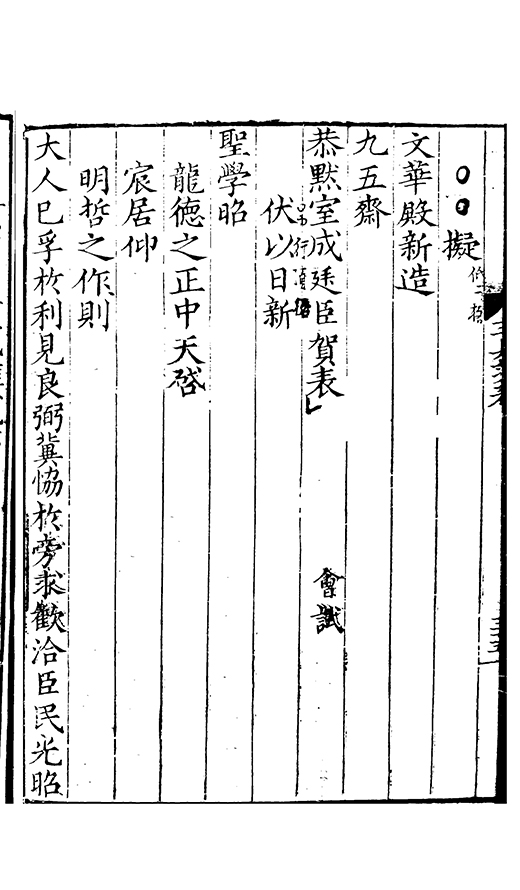 ○○擬
文華殿新造
九五齋
恭默室成廷臣賀表
會試
伏以日新
聖學昭
龍德之正中天啓
宸居仰
明哲之作則
大人已孚於利見良弼冀恊於旁求歡洽臣民光昭